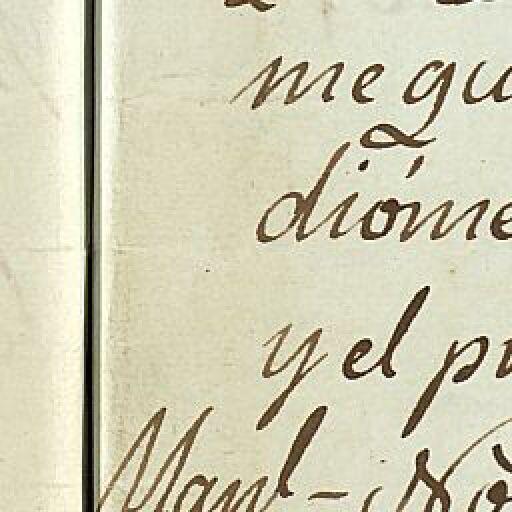 me gu
dióme
y el pu
Manl - Nò